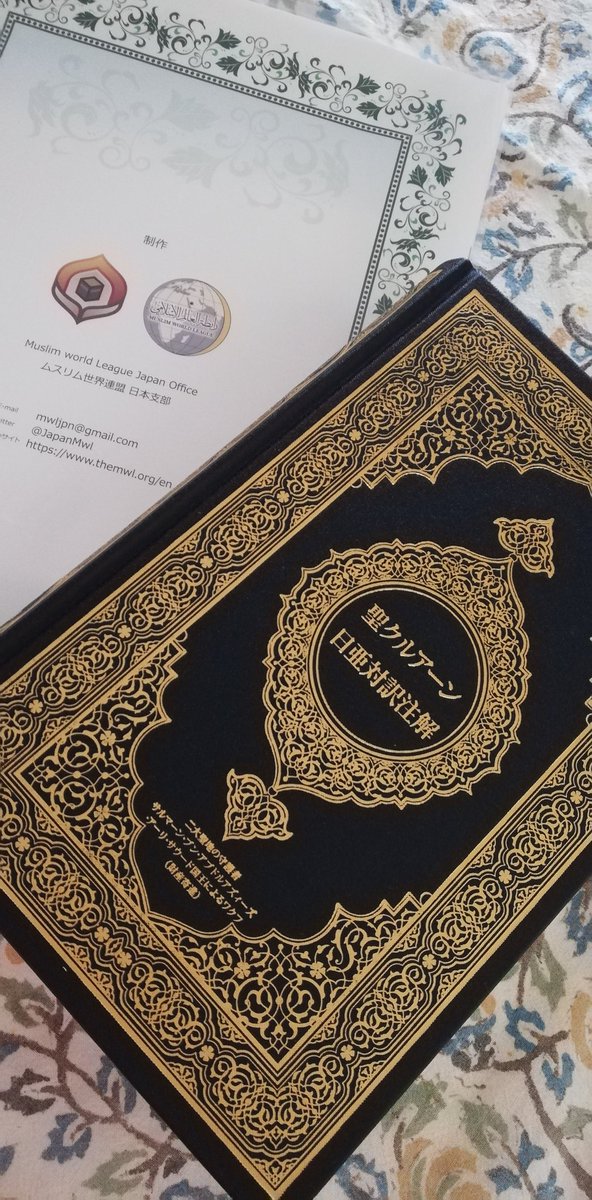 制作
رابطة العالم الإسلامي
MUSLIM WORLD LEAGUE
Muslim world League Japan Office
ムスリム世界連盟 日本支部
mwljpn@gmail.com
@JapanMwl
https://www.themwl.org/en
聖クルアーン
日亜対訳注解
二大聖地の守護者
サルマーン・ブン・アブドルアズィーズ
アーリ・サウード国王によるワクフ